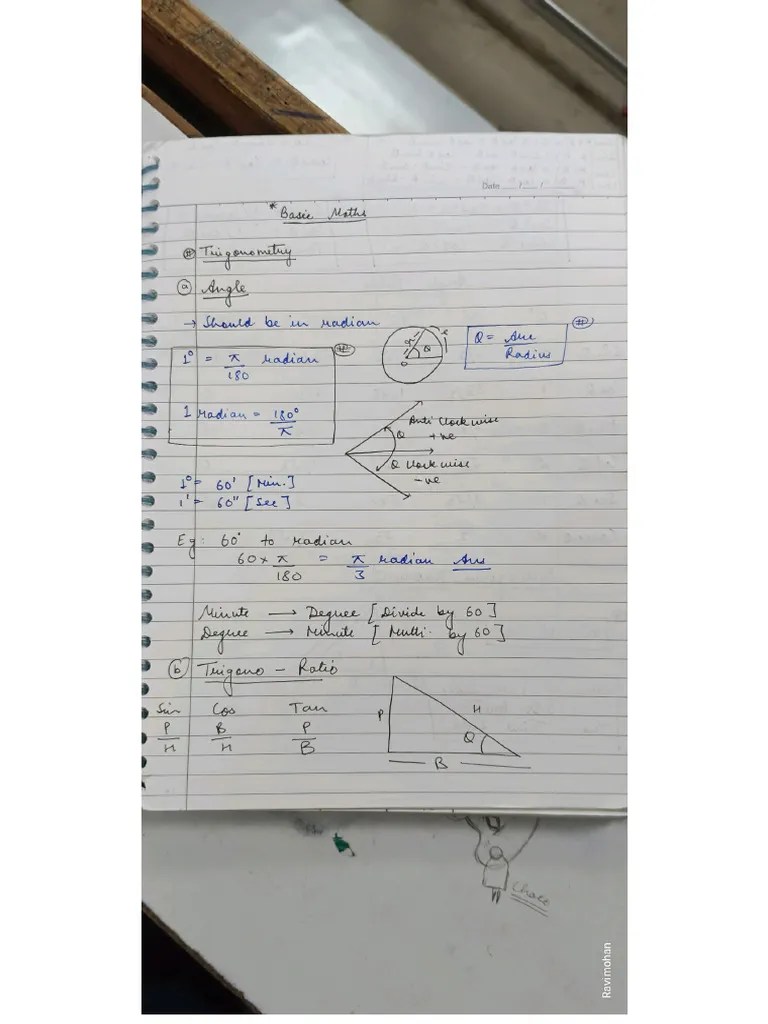 Date / /
* Basic Maths
# Trigonometry
(a) Angle
→ Should be in radian
1° = π/180 radian #
1 radian = 180°/π
r r Q O
Q = Arc/Radius #
Anti Clockwise
Q +ve
Q Clockwise
-ve
1° = 60' [Min.]
1' = 60" [Sec]
Eg: 60° to radian
60 × π/180 = π/3 radian Ans
Minute → Degree [Divide by 60]
Degree → Minute [Multi. by 60]
(b) Trigono - Ratio
Sin Cos Tan
P/H B/H P/B
P H Q
B
Choco
Ravimohan